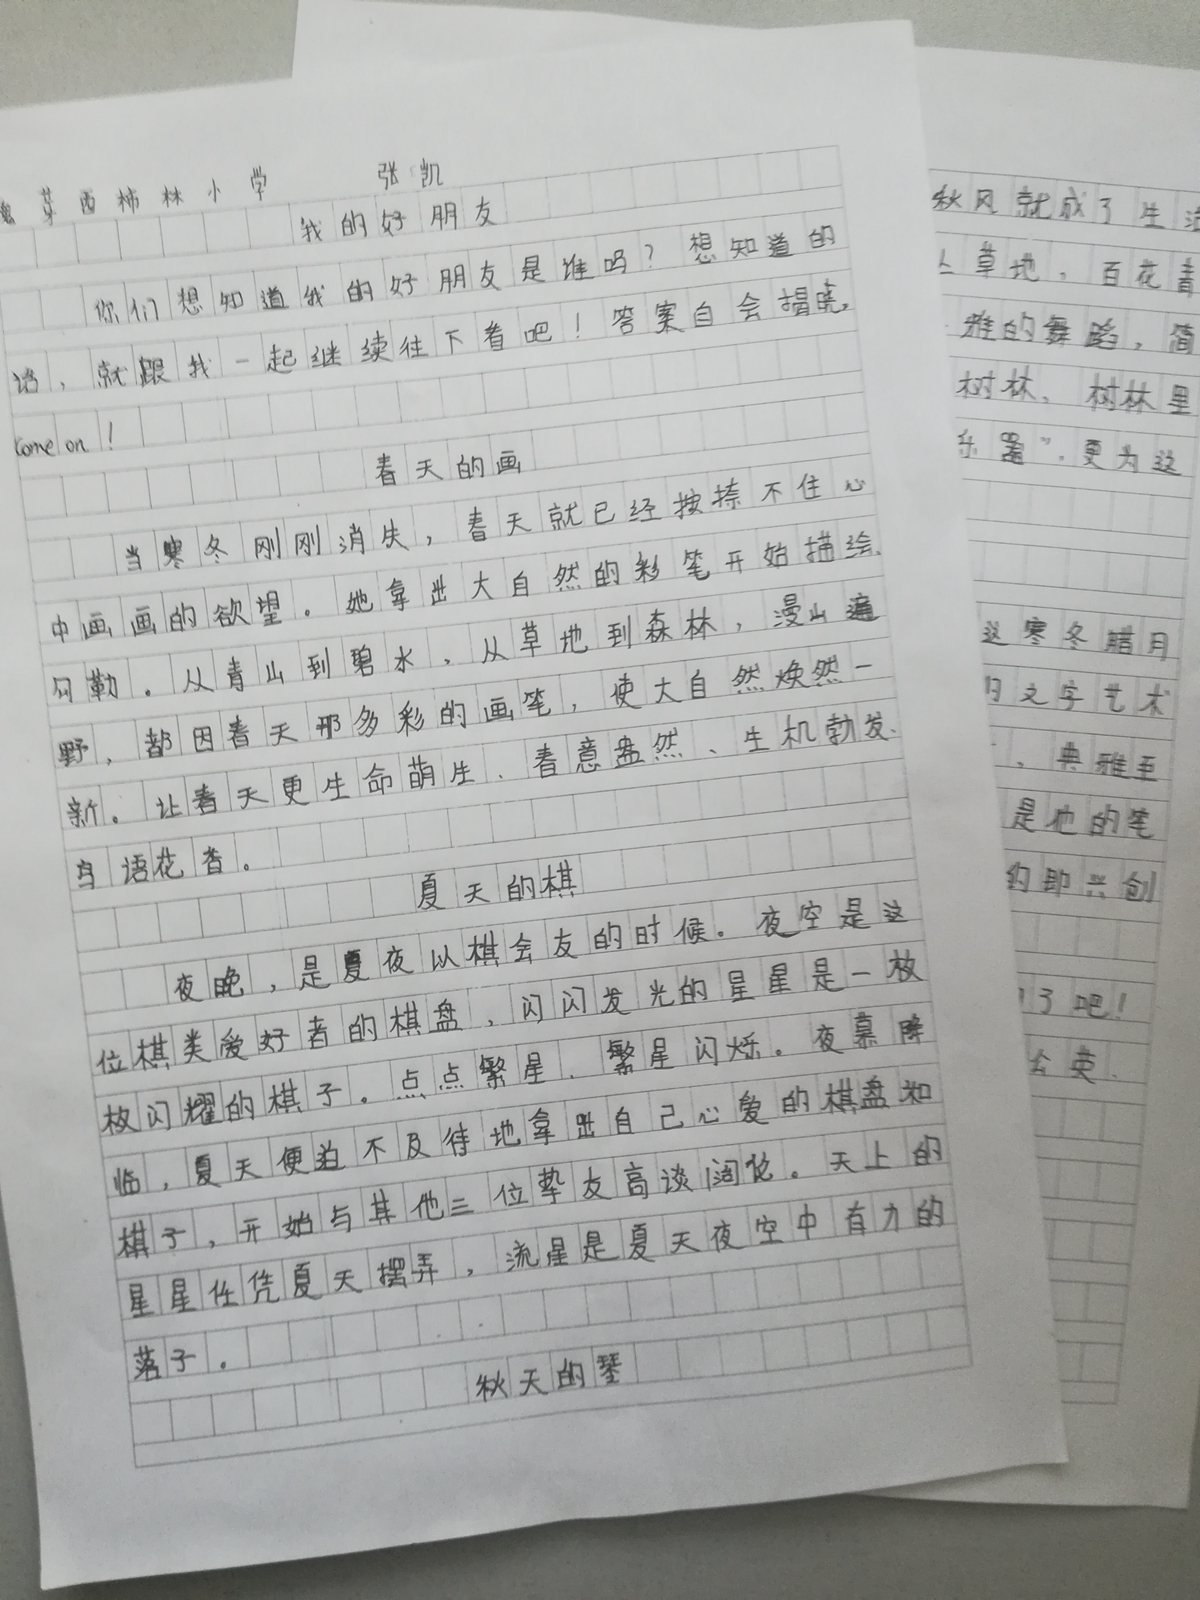 芽西柿林小学 张凯
我的好朋友
你们想知道我的好朋友是谁吗？想知道的
话，就跟我一起继续往下看吧！答案自会揭晓，
Come on！
春天的画
当寒冬刚刚消失，春天就已经按捺不住心
中画画的欲望。她拿出大自然的彩笔开始描绘、
勾勒。从青山到碧水、从草地到森林，漫山遍
野，都因春天那多彩的画笔，使大自然焕然一
新。让春天更生命萌生、春意盎然、生机勃发、
鸟语花香。
夏天的棋
夜晚，是夏夜以棋会友的时候。夜空是这
位棋类爱好者的棋盘，闪闪发光的星星是一枚
枚闪耀的棋子。点点繁星、繁星闪烁。夜幕降
临，夏天便迫不及待地拿出自己心爱的棋盘和
棋子，开始与其他三位挚友高谈阔论。天上的
星星任凭夏天摆弄，流星是夏天夜空中有力的
落子。
秋天的琴
秋风就成了生活
草地，百花青
雅的舞蹈，简
树林、树林里
乐器”，更为这
这寒冬腊月
文字艺术
、典雅至
是他的笔
的即兴创
了吧！